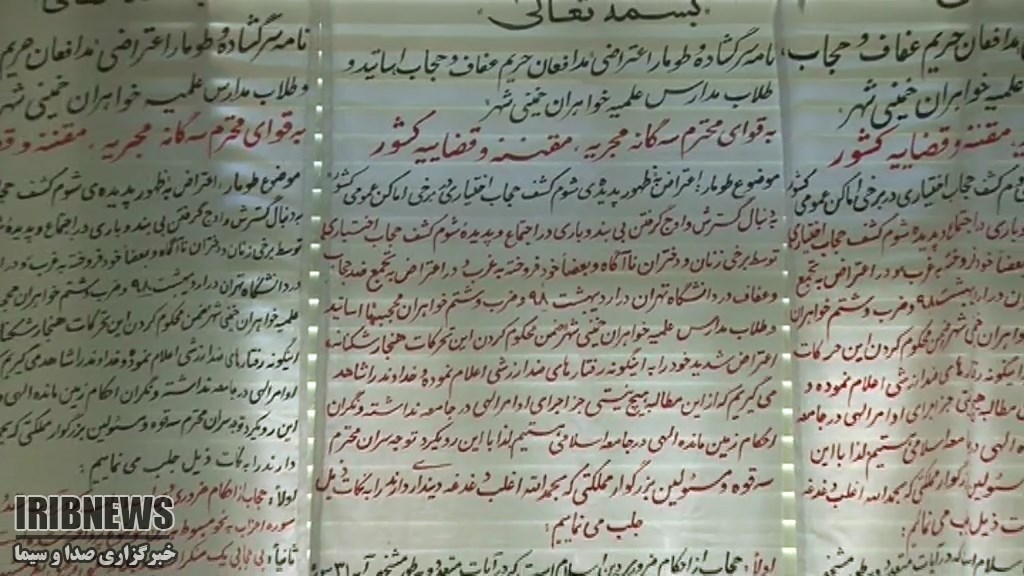 بسمه تعالی
نامه سرگشاده و طومار اعتراضی مدافعان حریم عفاف و حجاب اساتید و
طلاب مدارس علمیه خواهران خمینی شهر
به قوای محترم سه گانه مجریه ، مقننه و قضاییه کشور
موضوع طومار: اعتراض به ظهور پدیده ی شوم کشف حجاب اختیاری در برخی اماکن عمومی کشور
به دنبال گسترش و اوج گرفتن بی بند و باری در اجتماع و پدیده شوم کشف حجاب اختیاری
توسط برخی زنان و دختران ناآگاه و بعضاً خود فروخته به غرب و در اعتراض به تجمع ضد حجاب
و عفاف در دانشگاه تهران در اردیبهشت ۹۸ و ضرب و شتم خواهران محجبه اساتید
و طلاب مدارس علمیه خواهران خمینی شهر ضمن محکوم کردن این تحرکات هنجارشکنانه
اعتراض شدید خود را به اینگونه رفتارهای ضد ارزشی اعلام نموده و خداوند را شاهد
می گیریم که از این مطالبه هیچ نیتی جز اجرای اوامر الهی در جامعه نداشته و نگران
احکام زمین مانده الهی در جامعه اسلامی هستیم لذا با این رویکرد توجه سران محترم
سه قوه و مسئولین بزرگوار مملکتی که بحمدالله اغلب دغدغه دینداری دارند را به نکات ذیل
جلب می نماییم :
اولاً: حجاب از احکام ضروری دین اسلام است که در آیات متعدد و به طور مشخص آیه ۳۱
IRIBNEWS
خبرگزاری صدا و سیما